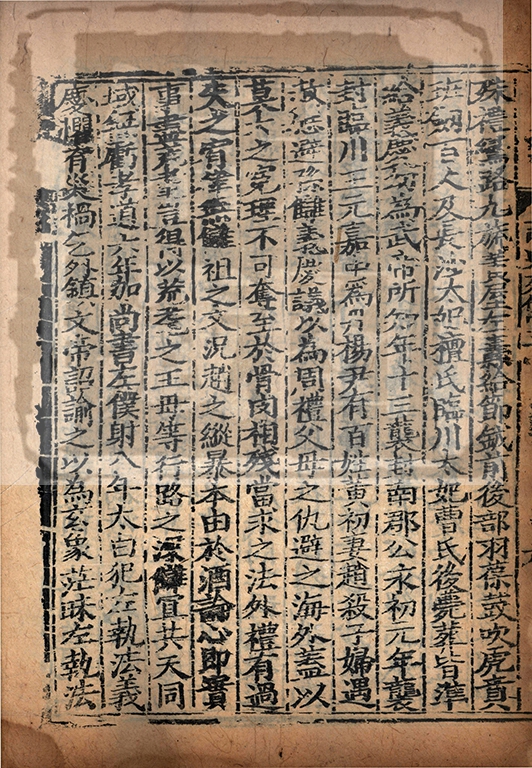 殊禮鸞路九旒黃屋左纛給節鉞前後部羽葆鼓吹虎賁
班劒百人及長沙太妃檀氏臨川太妃曹氏後薨葬皆準
給義慶幼為武帝所知年十三襲封南郡公永初元年襲
封臨川王元嘉中為丹楊尹有百姓黃初妻趙殺子婦遇
赦應避孫讎義慶議以為周禮父母之仇避之海外蓋以
莫大之寃理不可奪至於骨肉相殘當求之法外禮有過
失之宥律無讎祖之文況趙之縱暴本由於酒論心即實
事盡荒耄豈得以荒耄之王母等行路之深讎宜共天同
域無虧孝道六年加尚書左僕射八年太白犯左執法義
慶懼有災禍乞外鎮文帝詔諭之以為玄象茫昧左執法